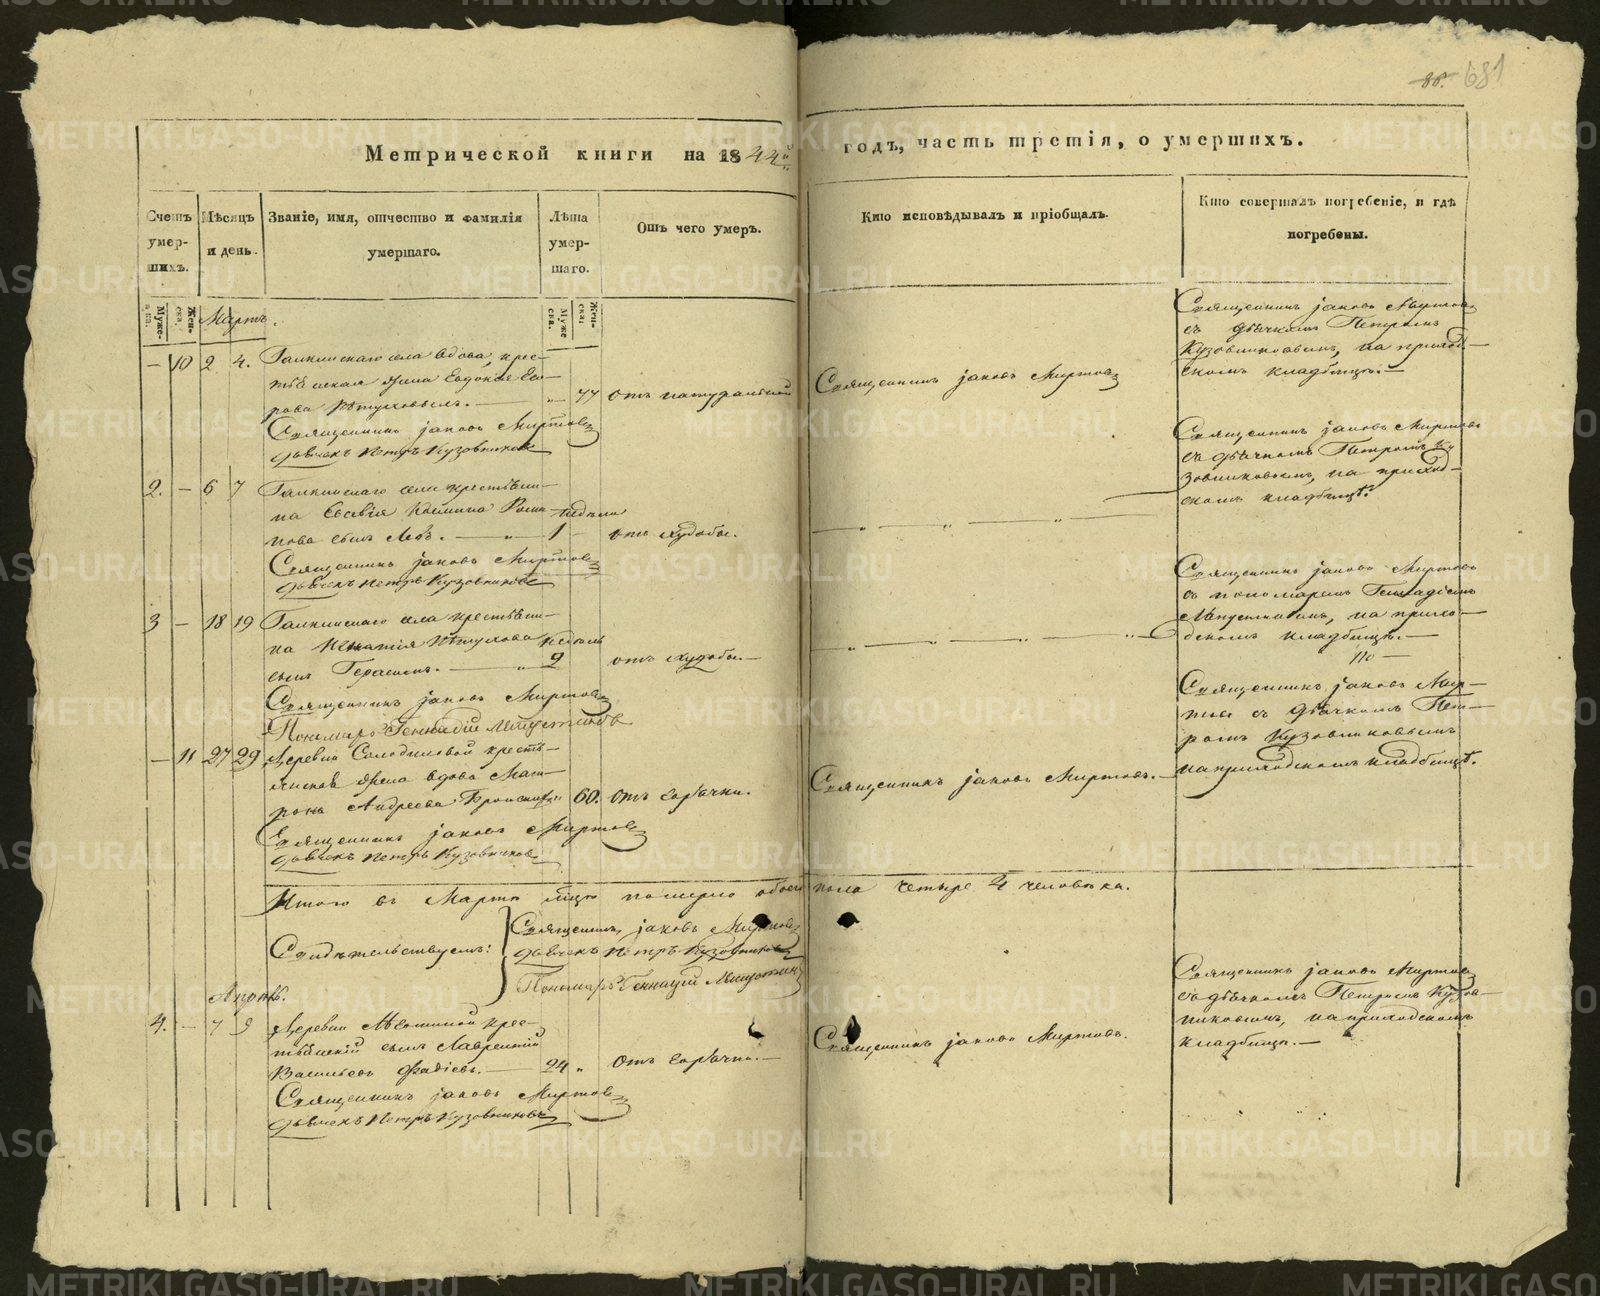 88. 681
Метрической книги на 1844й годъ, часть третія, о умершихъ.
Счетъ умер-шихъ.
Мѣсяцъ и день.
Званіе, имя, отчество и фамилія умершаго.
Лѣта умер-шаго.
Отъ чего умеръ.
Кто исповѣдывалъ и пріобщалъ.
Кто совершалъ погребеніе, и гдѣ погребены.
Муже-ска.
Жен-ска.
Муже ска.
Жен-ска.
Мартъ.
— 10 2 4. Галкинскаго села вдова, крес-
тьянская жена Евдокія Его-
рова — „ 77 отъ натуральной
Священникъ Іаковъ Миртовъ
Священникъ Іаковъ Миртовъ
дьячекъ Петръ Кузовниковъ
Священникъ Іаковъ Миртовъ
съ дьячкомъ Петромъ
Кузовниковымъ, на приход-
скомъ кладбищѣ.—
2. — 6 7 Галкинскаго села крестьяни-
на недѣли
пова сынъ Левъ. — „ 1 — отъ худобы.
Священникъ Іаковъ Миртовъ
дьячекъ Петръ Кузовниковъ
Священникъ Іаковъ Миртовъ
съ дьячкомъ Петромъ Ку-
зовниковымъ, на приход-
скомъ кладбищѣ.
3 — 18 19 Галкинскаго села крестьяни-
на Игнатія Пѣтухова недѣль
сынъ Герасимъ. — „ 2 отъ худобы.—
Священникъ Іаковъ Миртовъ
Пономарь Геннадій
Священникъ Іаковъ Миртовъ
съ пономаремъ Геннадіемъ
на прихо-
дскомъ кладбищѣ.—
— 11 27 29 Деревни Солодиловой кресть-
янская жена вдова Мат-
рона Андреева 60. отъ горячки.
Священникъ Іаковъ Миртовъ.
Священникъ Іаковъ Миртовъ
дьячекъ Петръ Кузовниковъ
Священникъ Іаковъ Мир-
товъ съ дьячкомъ Пет-
ромъ Кузовниковымъ
на приходскомъ кладбищѣ.
Итого въ Мартѣ мѣсяцѣ померло обоего пола четыре 4 человѣка.
Свидѣтельствуемъ:
Священникъ Іаковъ Миртовъ
дьячекъ Петръ Кузовниковъ
Пономарь Геннадій
Апрѣль.
4. — 7 9 Деревни крес-
тьянскій сынъ Лаврентій
Васильевъ Фадѣевъ. — 24 „ отъ горячки.—
Священникъ Іаковъ Миртовъ.
Священникъ Іаковъ Миртовъ
дьячекъ Петръ Кузовниковъ
Священникъ Іаковъ Миртовъ
съ дьячкомъ Петромъ Кузов-
никовымъ, на приходскомъ
кладбищѣ.—
METRIKI.GASO-URAL.RU